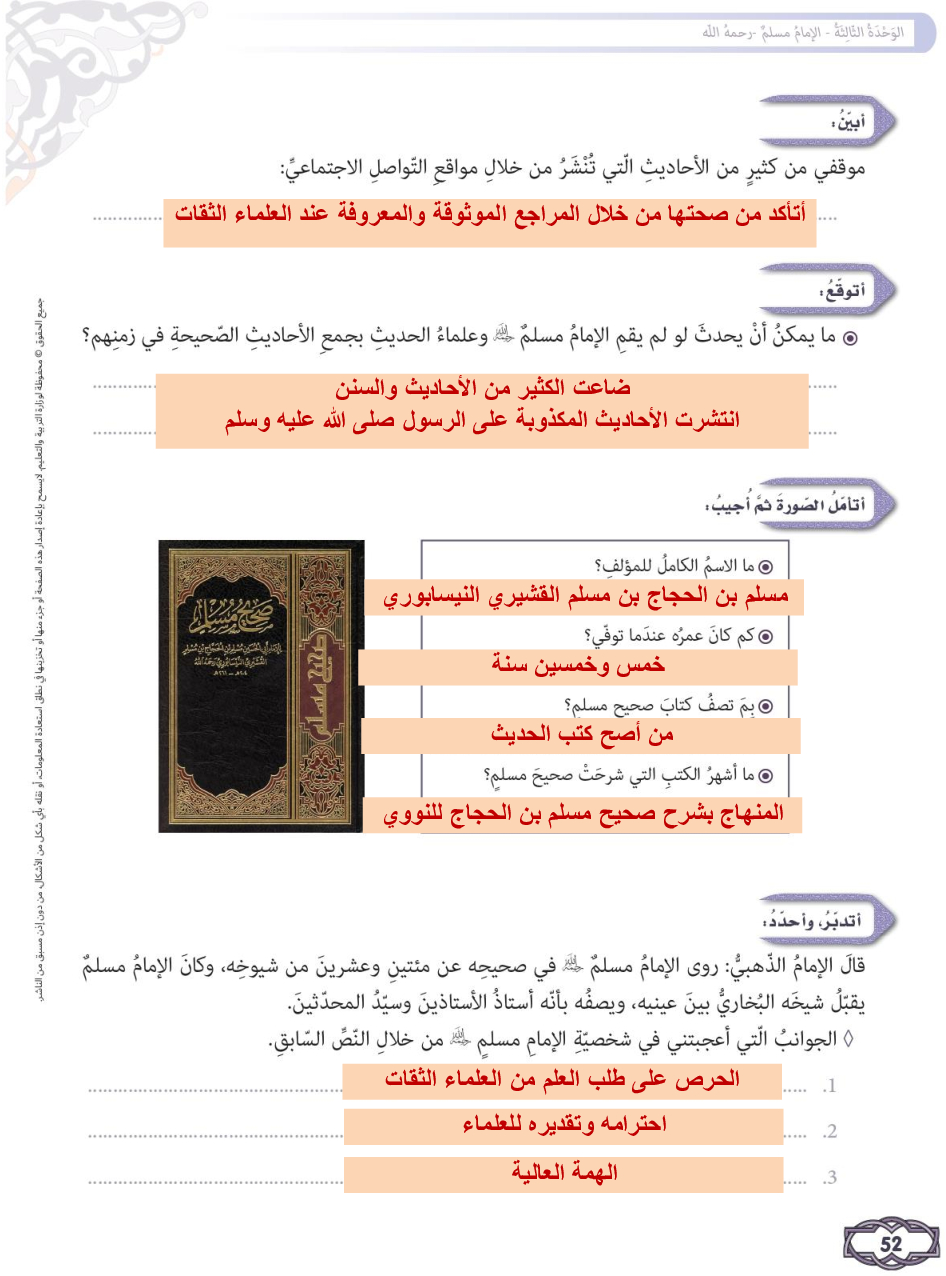 الوَحْدَةُ الثّالِثَةُ - الإمامُ مسلمٌ -رحمهُ اللّه
أبيّنُ:
موقفي من كثيرٍ من الأحاديثِ الّتي تُنْشَرُ من خلالِ مواقعِ التّواصلِ الاجتماعيِّ:
أتأكد من صحتها من خلال المراجع الموثوقة والمعروفة عند العلماء الثقات
أتوقّعُ:
ما يمكنُ أنْ يحدثَ لو لم يقمِ الإمامُ مسلمٌ رحمه الله وعلماءُ الحديثِ بجمعِ الأحاديثِ الصّحيحةِ في زمنِهم؟
ضاعت الكثير من الأحاديث والسنن
انتشرت الأحاديث المكذوبة على الرسول صلى الله عليه وسلم
أتأمّلُ الصّورةَ ثمَّ أُجيبُ:
ما الاسمُ الكاملُ للمؤلفِ؟
مسلم بن الحجاج بن مسلم القشيري النيسابوري
كم كانَ عمرُه عندَما توفّي؟
خمس وخمسين سنة
بِمَ تصفُ كتابَ صحيحِ مسلمٍ؟
من أصح كتب الحديث
ما أشهرُ الكتبِ التي شرحَتْ صحيحَ مسلمٍ؟
المنهاج بشرح صحيح مسلم بن الحجاج للنووي
صحيح مسلم
للإمام أبي الحسين مسلم بن الحجاج بن مسلم
القشيري النيسابوري رحمه الله
٢٠٤هـ - ٢٦١هـ
صحيح مسلم
أتدبّرُ، وأحدّدُ:
قالَ الإمامُ الذّهبيُّ: روى الإمامُ مسلمٌ رحمه الله في صحيحِه عن مئتينِ وعشرينَ من شيوخِه، وكانَ الإمامُ مسلمٌ
يقبّلُ شيخَه البُخاريُّ بينَ عينيه، ويصفُه بأنّه أستاذُ الأستاذينَ وسيّدُ المحدّثينَ.
◊ الجوانبُ الّتي أعجبتني في شخصيّةِ الإمامِ مسلمٍ رحمه الله من خلالِ النّصِّ السّابقِ.
1. الحرص على طلب العلم من العلماء الثقات
2. احترامه وتقديره للعلماء
3. الهمة العالية
جميع الحقوق © محفوظة لوزارة التربية والتعليم. لايسمح بإعادة إصدار هذه الصفحة أو جزء منها أو تخزينها في نطاق استعادة المعلومات، أو نقله بأي شكل من الأشكال، من دون إذن مسبق من الناشر.
52